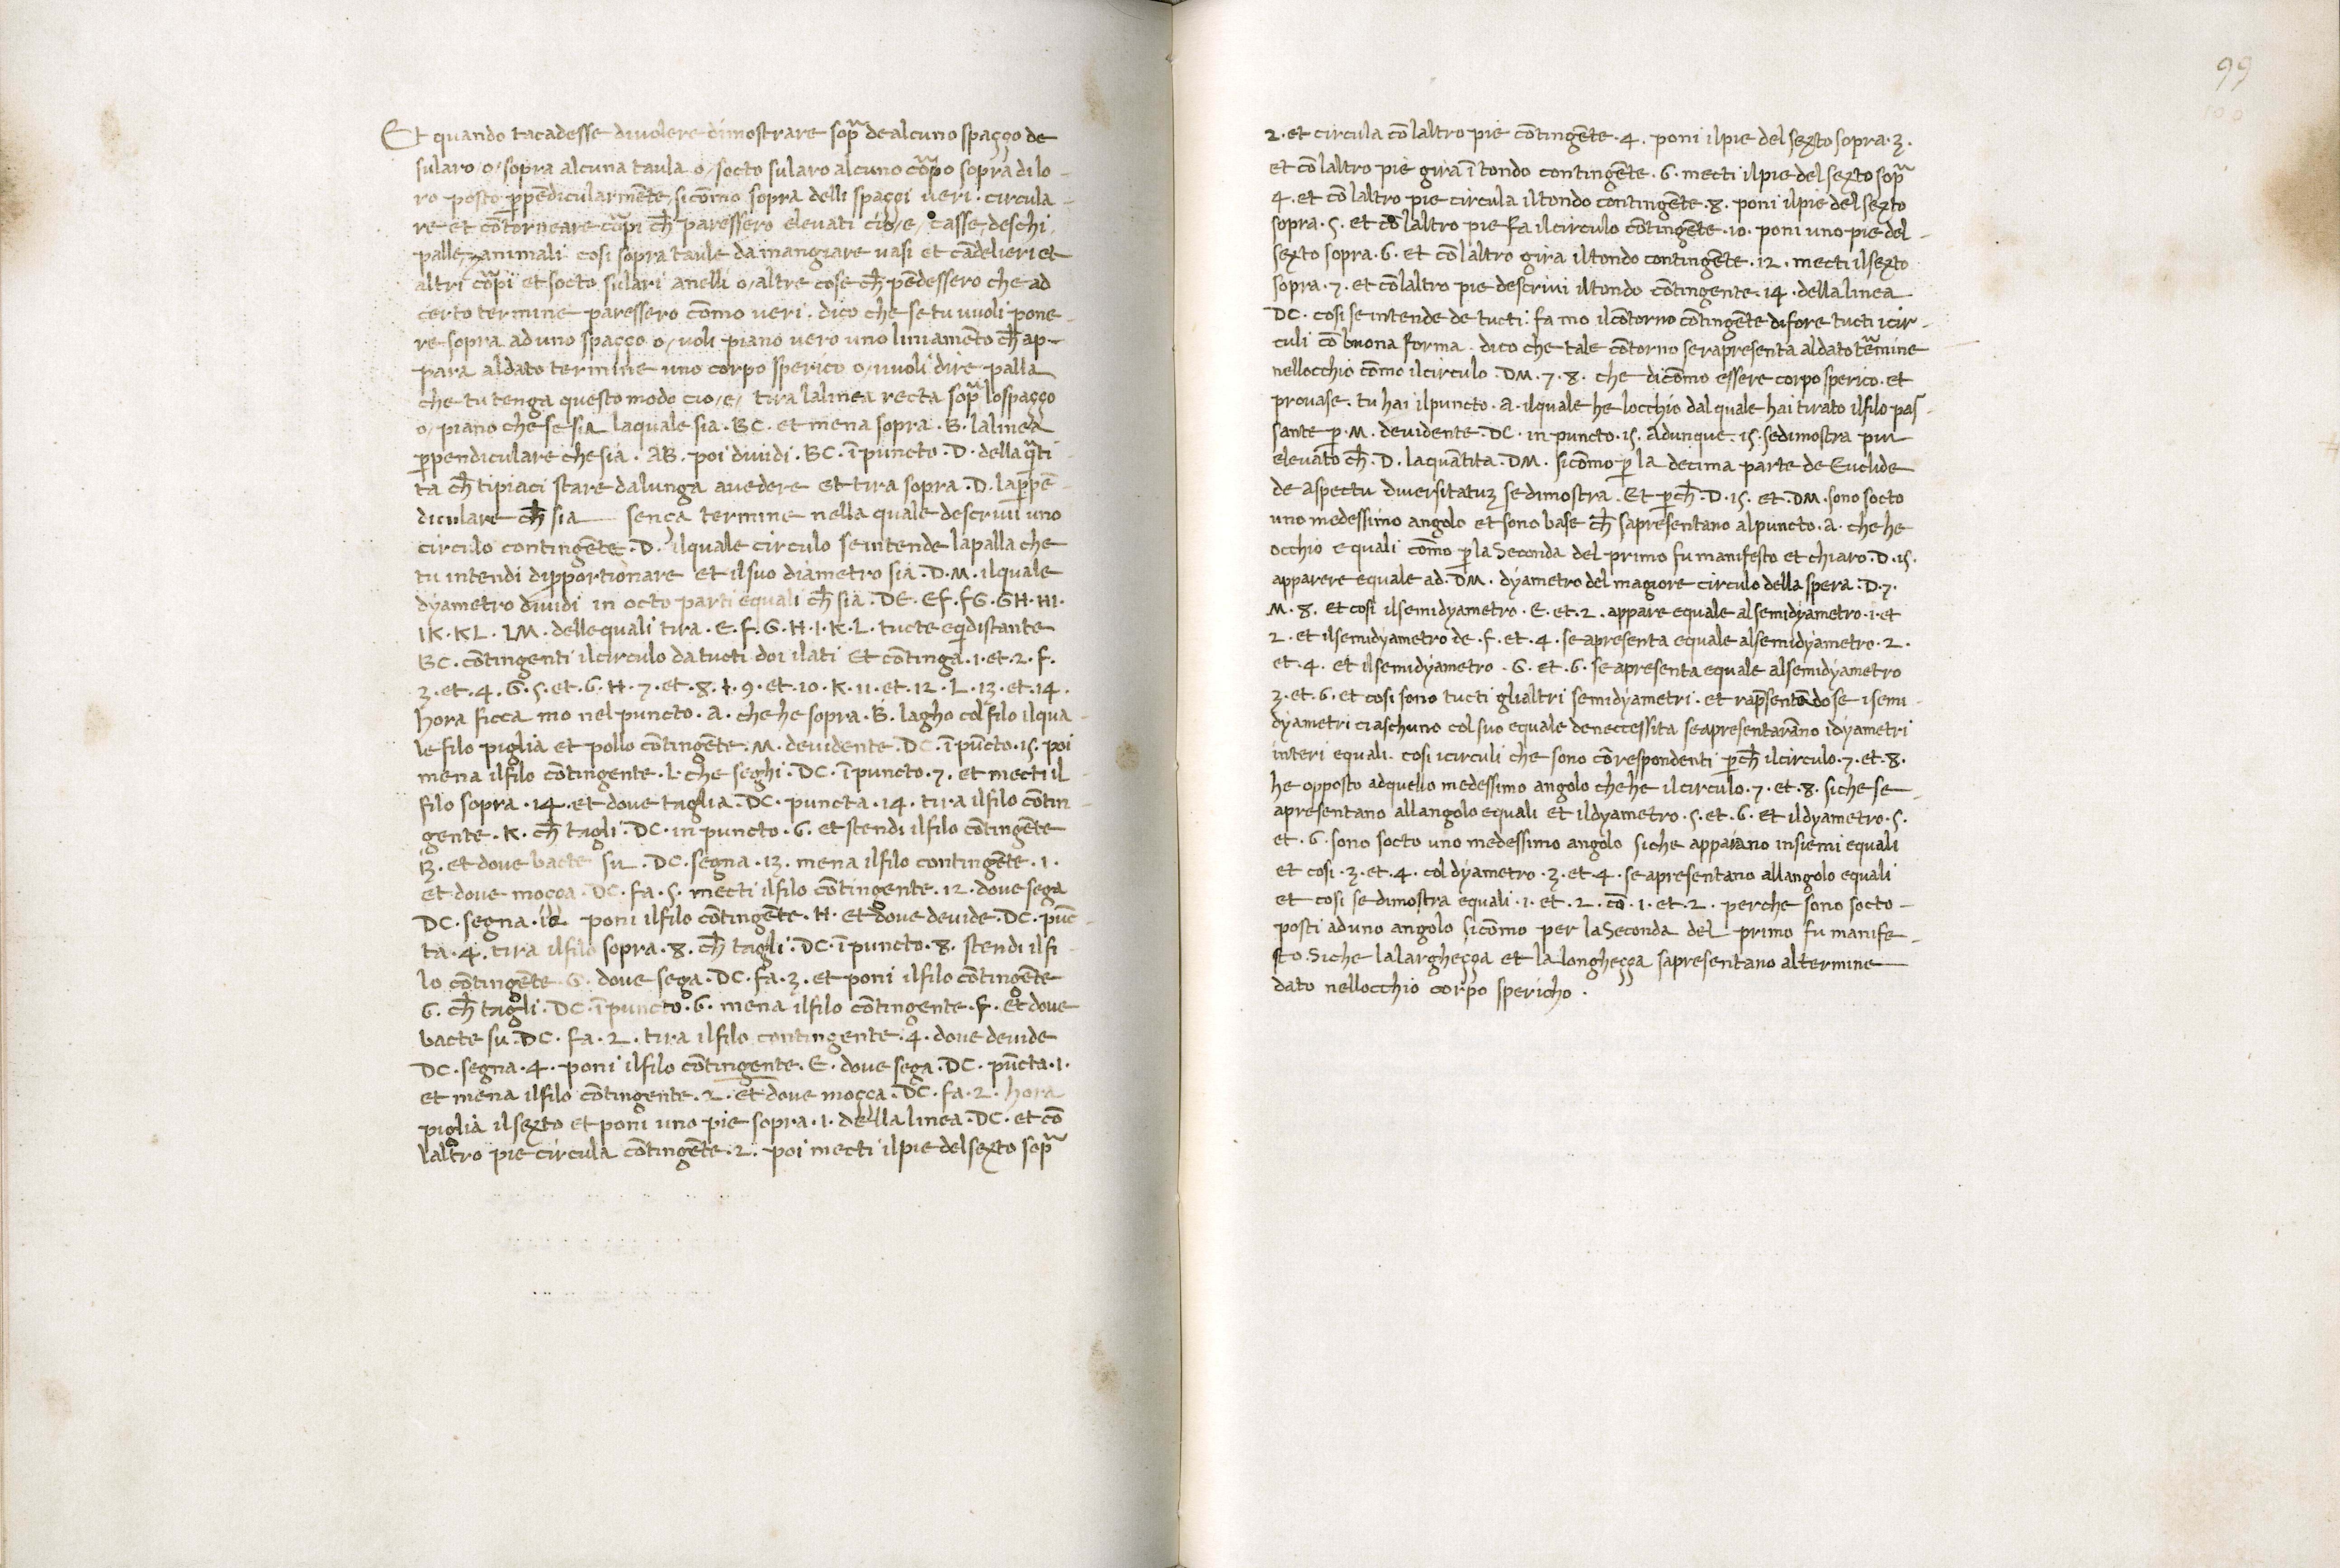 Et quando tacadesse divolere dimostrare sop̃ dealcuno spaçço de
sularo /o/ sopra alcuna taula o/ socto sularo alcuno cõpo sopra di lo-
ro posto ꝑpẽdicularmẽte, sicõmo sopra delli spaççi veri. circula-
re et cõtorneare cõpi ch̃ paressero elevati cio/e/ casse, deschi,
palle, animali cosi sopra taule da mangiare vasi et cãdelieri et
altri cõpi et socto sulari anelli o/altre cose ch̃ pẽdessero che ad
certo termine paressero cõmo veri. dico che se tu vuoli pone-
re sopra ad uno spaçço o/voli piano vero uno liniamẽto ch̃ ap-
para aldato termine uno corpo sperico o/vuoli dire palla
che tu tenga questo modo cio/e/ tira lalinea recta sop̃ lospaçço
o/ piano che se sia laquale sia .BC. et mena sopra .B. lalinea
ꝑpendiculare che sia .AB. poi dividi .BC. ĩ puncto .D. della q̃ti
ta ch̃ tipiaci stare dalunga avedere et tira sopra .D. laꝑpẽ-
diculare ch̃ sia sença termine nella quale descrivi uno
circulo contingẽte .D. ilquale circulo se intende lapalla che
tu intendi diꝓportionare et ilsuo diametro sia .D.M. ilquale
dyametro dividi in octo parti equali ch̃ sia .DE.EF.FG.GH.HI.
IK.KL.LM. dellequali tira .E.F.G.H.I.K.L. tucte eq̃distante
BC. cõtingenti ilcirculo da tucti doi ilati et cõtinga .1.et.2.F.
3.et.4.G.5.et.6.H.7.et.8.I.9.et.10.K.11.et.12.L.13.et.14.
hora ficca mo nel puncto .A. che he sopra .B. lagho col filo ilqua-
le filo piglia et pollo cõtingẽte .M. devidente .DC. ĩ pũcto .15. poi
mena ilfilo cõtingente .L. che seghi .DC. ĩ puncto .7. et mecti il
filo sopra .14. et dove taglia .DC. puncta .14. tira ilfilo cõtin-
gente .K. ch̃ tagli .DC. in puncto .6. et stendi ilfilo cõtingẽte
13. et dove bacte su .DC. segna .13. mena ilfilo contingẽte .I.
et dove moçça .DC. fa .5. mecti ilfilo cõtingente .12. dove sega
DC. segna poni ilfilo cõtingẽte .H. et dove devide .DC. pũc-
ta .4. tira ilfilo sopra .8. ch̃ tagli .DC. ĩ puncto .8. stendi ilfi-
lo cõtingẽte .G. dove sega .DC. fa .3. et poni ilfilo cõtingẽte
6. ch̃ tagli .DC. ĩ puncto .6. mena ilfilo cõtingente .F. et dove
bacte su .DC. fa .2. tira ilfilo contingente .4. dove devide
DC. segna .4. poni ilfilo cõtingente .E. dove sega .DC. pũcta .1.
et mena ilfilo cõtingente .2. et dove moçça .DC. fa .2. hora
piglia ilsexto et poni uno pie sopra .1. della linea .DC. et cõ
laltro pie circula cõtingẽte .2. poi mecti ilpie del sexto sop̃
99
100
2. et circula cõ laltro pie cõtingẽte .4. poni ilpie del sexto sopra .3.
et cõ laltro pie gira ĩ tondo contingẽte .6. mecti ilpie del sexto sop̃
4. et cõ laltro pie circula iltondo contingẽte .8. poni ilpie del sexto
sopra .5. et cõ laltro pie fa ilcirculo cõtingẽte .10. poni uno pie del-
sexto sopra .6. et cõ laltro gira iltondo contingẽte .12. mecti ilsexto
sopra .7. et cõ laltro pie descrivi iltondo cõtingente .14. della linea
DC. cosi se intende de tucti. fa mo ilcõtorno cõtingẽte difore tucti icir-
culi cõ buona forma. dico che tale cõtorno serapresenta aldato tẽmine
nellocchio cõmo ilcirculo .DM.7.8. che dicõmo essere corpo sperico. et
provase. tu hai ilpuncto .A. ilquale he locchio dal quale hai tirato ilfilo pas-
sante ꝑ .M. devidente .DC. in puncto .15. Adunque .15. sedimostra piu
elevato ch̃ .D. laquãtita .DM. sicõmo ꝑ la decima parte de Euclide
de aspectu diversitatuȝ se dimostra. Et ꝑch̃ .D.15. et .DM. sono socto
uno medessimo angolo et sono base ch̃ sapresentano alpuncto .A. che he
occhio equali cõmo ꝑ la Seconda del primo fu manifesto et chiaro .D.15.
apparere equale ad .DM. dyametro del magiore circulo della spera .D.7.
M.8. et cosi ilsemidyametro .E. et .2. appare equale al semidyametro .1. et
2. et ilsemidyametro de .F. et .4. se apresenta equale alsemidyametro .2.
et .4. et ilsemidyametro .G. et .6. se apresenta equale alsemidyametro
3. et .6. et cosi sono tucti glialtri semidyametri. et rap̃sentãdose isemi-
dyametri ciaschuno col suo equale deneccessita seapresentarãno idyametri
interi equali. cosi icirculi che sono cõrespondenti ꝑch̃ ilcirculo .7. et .8.
he opposto adquello medessimo angolo che he ilcirculo .7. et .8. siche se-
apresentano allangolo equali et ildyametro .5. et .6. et ildyametro .5.
et .6. sono socto uno medessimo angolo siche appaiano insiemi equali
et cosi .3. et .4. col dyametro .3. et .4. se apresentano allangolo equali
et cosi se dimostra equali .1. et .2. cõ .1. et .2. perche sono socto-
posti ad uno angolo sicõmo per la Seconda del primo fu manife-
sto. Siche lalargheçça et la longheçça sapresentano altermine
dato nellocchio corpo spericho.